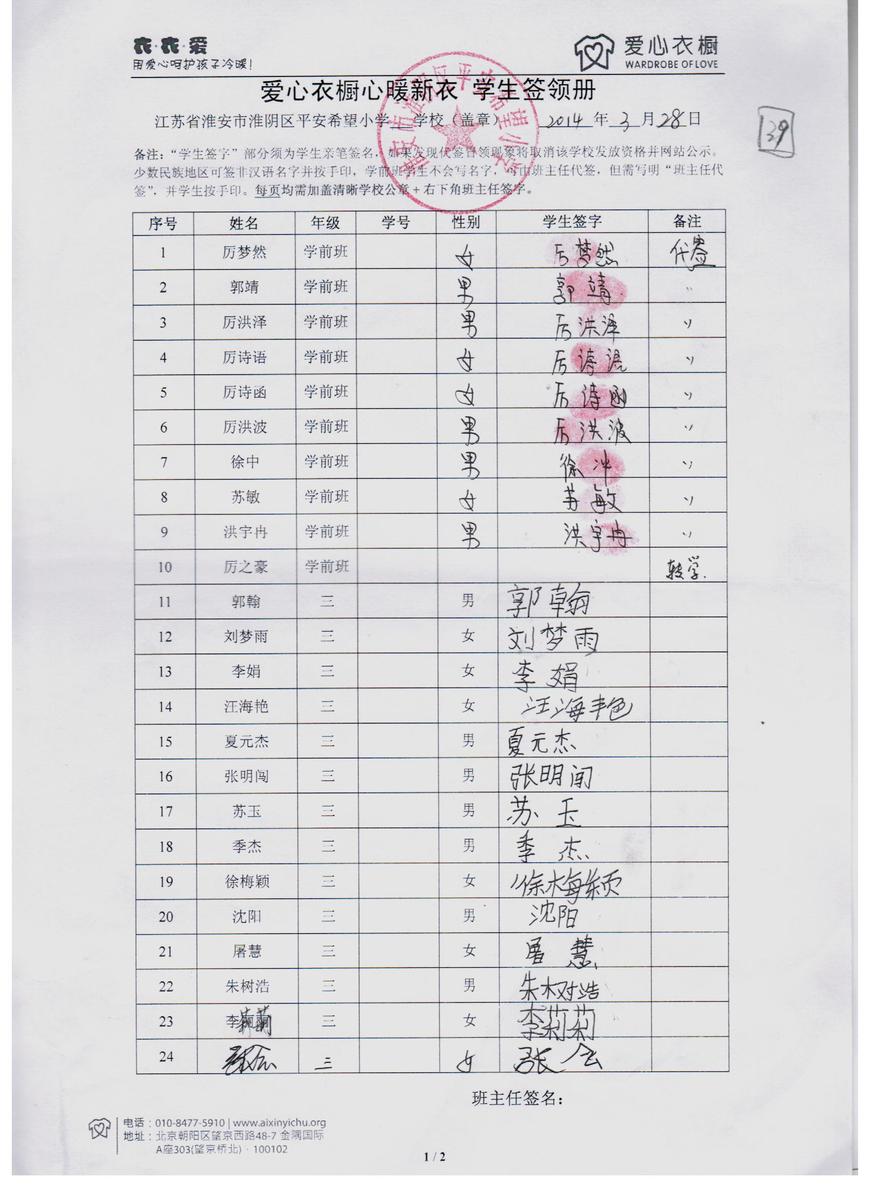 衣·衣·爱
用爱心呵护孩子冷暖!
爱心衣橱
WARDROBE OF LOVE
爱心衣橱心暖新衣 学生签领册
江苏省淮安市淮阴区平安希望小学 学校（盖章） 2014 年 3 月 28 日
139
备注：“学生签字”部分须为学生亲笔签名，如果发现代签冒领现象将取消该校发放资格并网站公示。
少数民族地区可签非汉语名字并按手印，学前班学生不会写名字，可由班主任代签，但需写明“班主任代
签”，并学生按手印。每页均需加盖清晰学校公章+右下角班主任签字。
序号 姓名 年级 学号 性别 学生签字 备注
1 厉梦然 学前班 女 厉梦然 代签
2 郭靖 学前班 男 郭靖 〃
3 厉洪泽 学前班 男 厉洪泽 〃
4 厉诗语 学前班 女 厉诗语 〃
5 厉诗函 学前班 女 厉诗函 〃
6 厉洪波 学前班 男 厉洪波 〃
7 徐中 学前班 男 徐冲 〃
8 苏敏 学前班 女 苏敏 〃
9 洪宇冉 学前班 男 洪宇冉 〃
10 厉之豪 学前班 转学.
11 郭翰 三 男 郭翰
12 刘梦雨 三 女 刘梦雨
13 李娟 三 女 李娟
14 汪海艳 三 女 汪海艳
15 夏元杰 三 男 夏元杰
16 张明闯 三 男 张明闻
17 苏玉 三 男 苏玉
18 季杰 三 男 季杰
19 徐梅颖 三 女 徐梅颖
20 沈阳 三 男 沈阳
21 屠慧 三 女 屠慧
22 朱树浩 三 男 朱树浩
23 李莉莉 三 女 李莉莉
24 张会 三 女 张会
班主任签名：
电话：010-8477-5910 | www.aixinyichu.org
地址：北京朝阳区望京西路48-7 金隅国际
A座303(望京桥北) · 100102
1 / 2